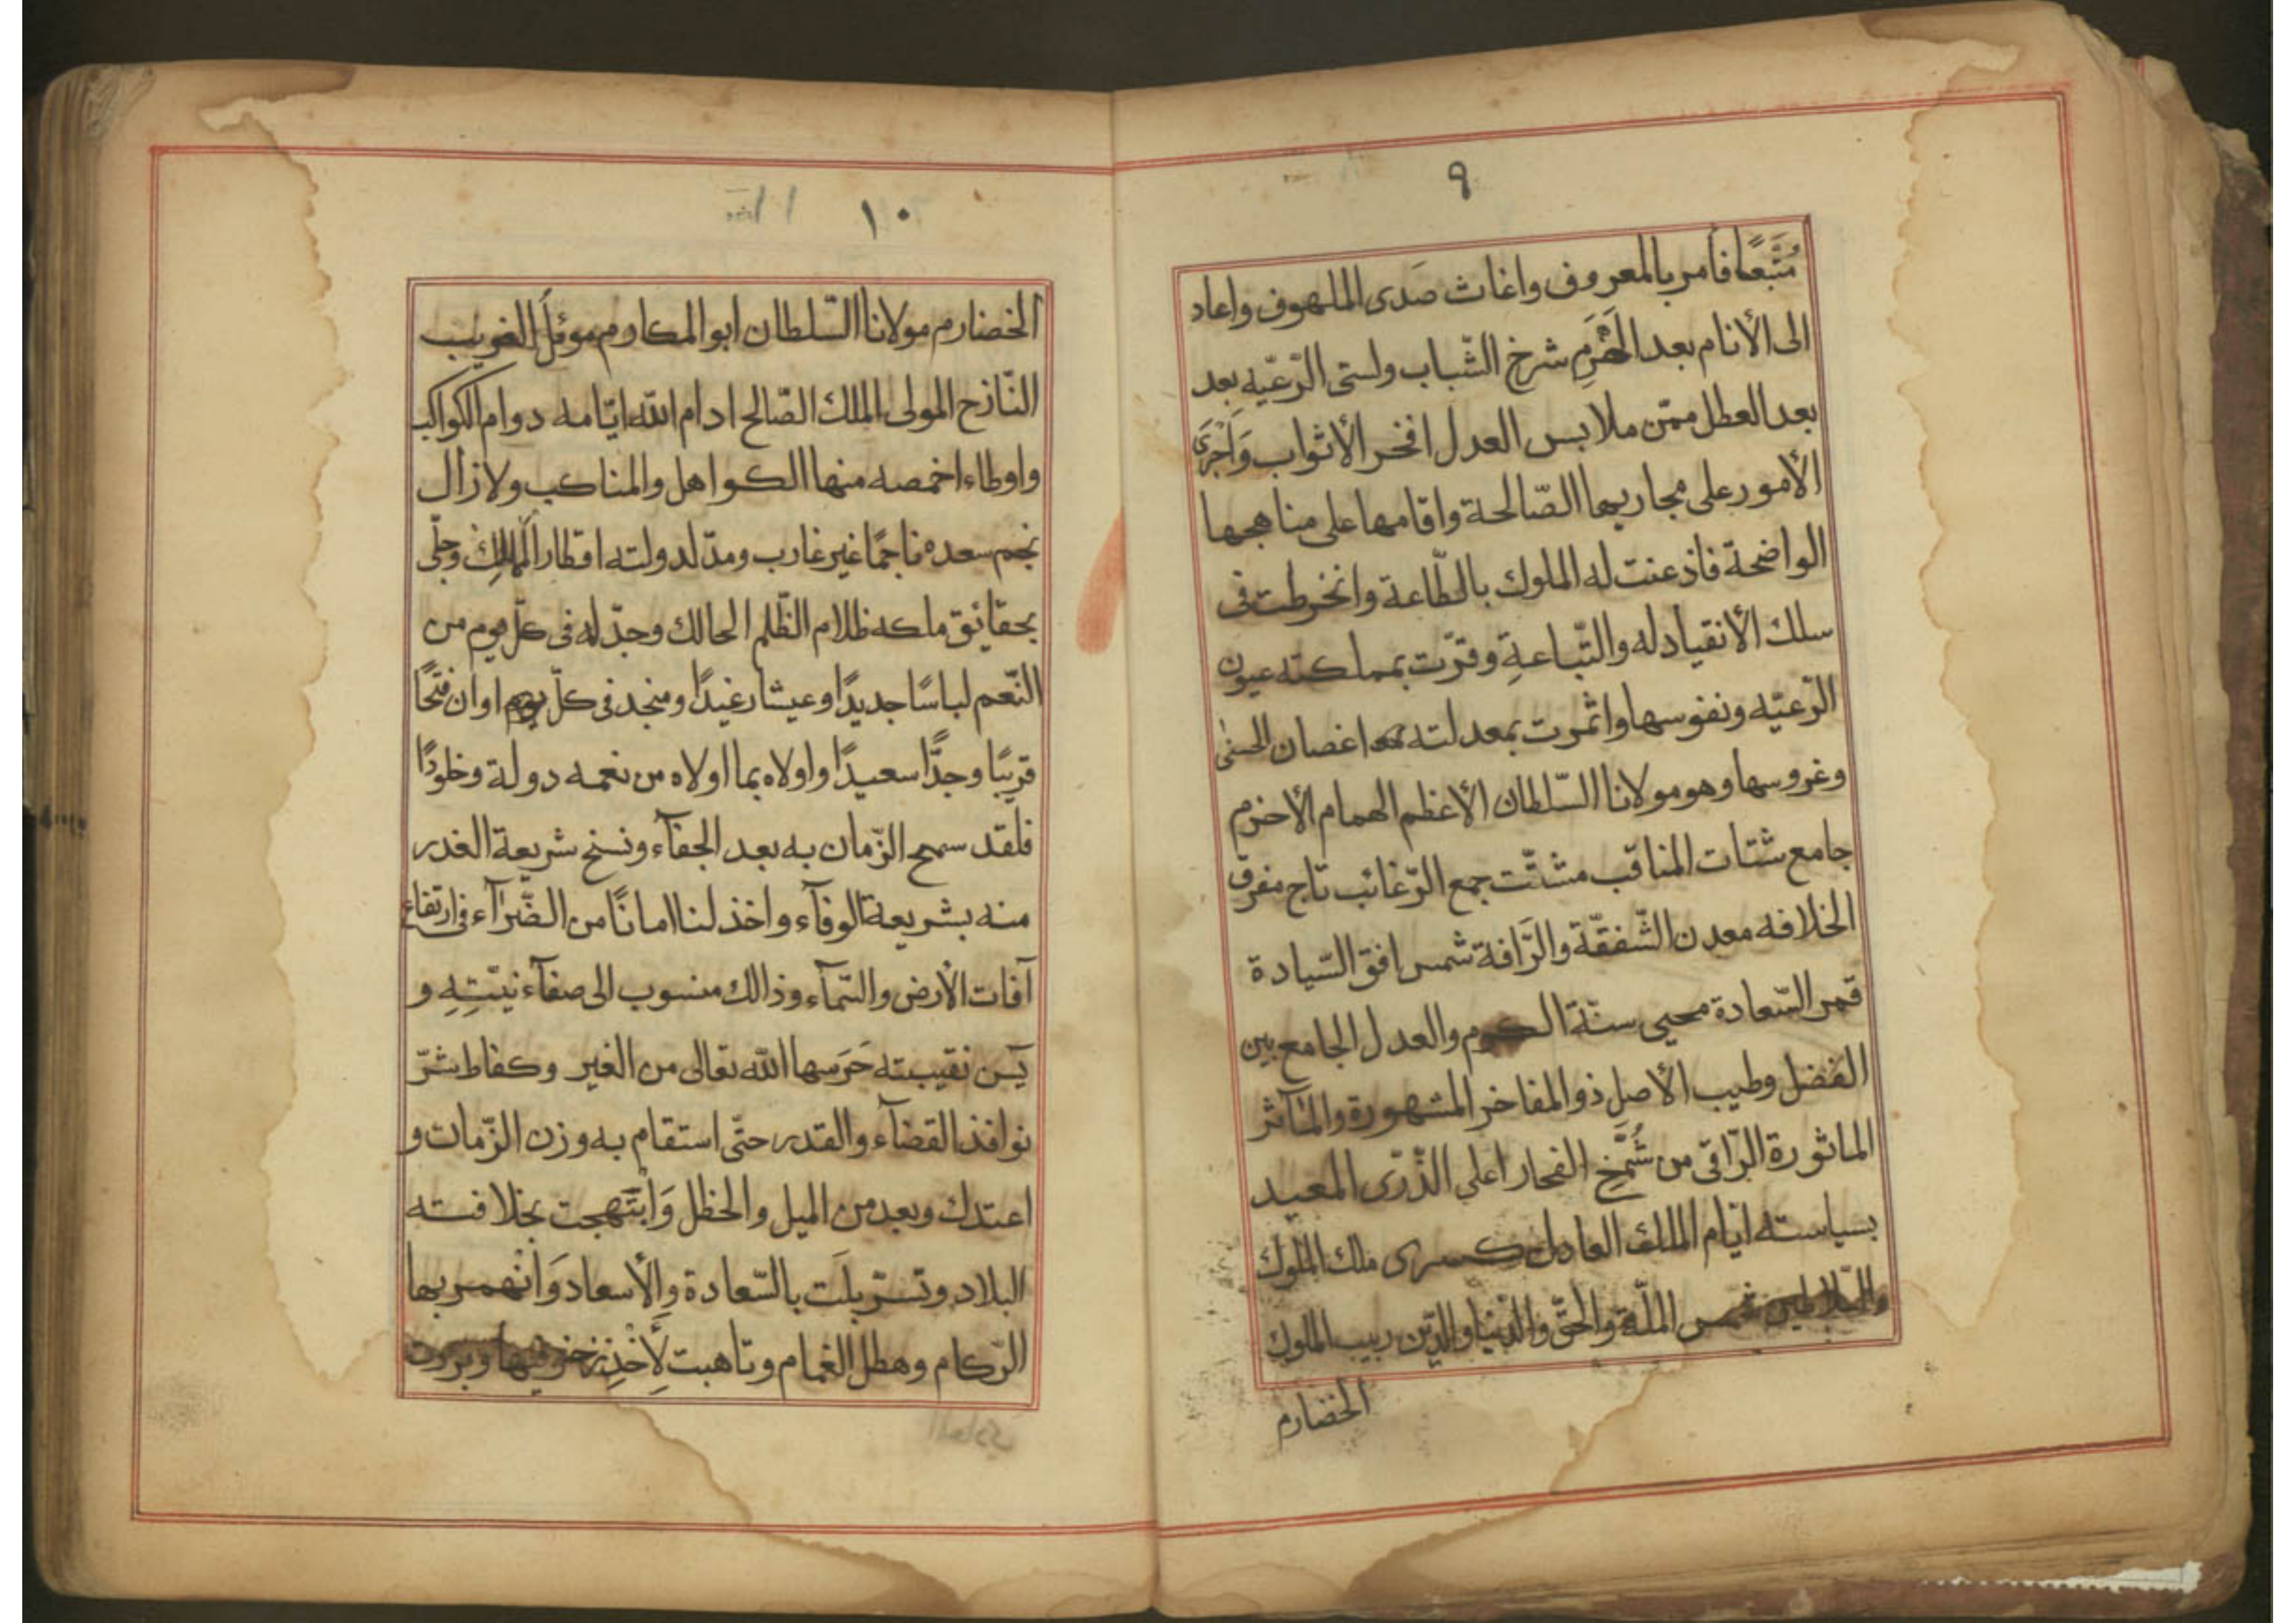 ٩
مُتَّبَعًا فأمر بالمعروف واغاث صَدى الملهوف واعاد
الى الأنام بعد الهَرَمِ شرخ الشّباب ولستى الرّعيّه بعد
بعد العطل ممّن ملابس العدل افخر الأثواب وَاَجْرَى
الأمور على مجاريها الصّالحة واقامها على مناهجها
الواضحة فاذعنت له الملوك بالطّاعة وانخرطت فى
سلك الأنقياد له والتّباعةِ وقرّت بمملكته عيون
الرّعيّه ونفوسها واثمرت بمعدلته اغصان الحسنى
وغروسها وهو مولانا السّلطان الأعظم الهمام الأخزم
جامع شتات المناقب مشتّت جمع الرّغائب تاج مفرق
الخلافه معدن الشّفقّة والرَّافة شمس افق السّيادة
قمر السّعادة محيى سنّة الكرم والعدل الجامع بين
الفضل وطيب الأصل ذو المفاخر المشهورة والمآثر
الماثورة الرّاقى من شُمَّخِ الفخار اعلى الذّرّى المعيد
بسياسته ايّام الملك العادل كسرى ملك الملوك
والسّلاطين شمس الملّة والحقّ والدّنيا والدّين ربيب الملوك
الخضارم
١٠
١١
الخضارم مولانا السّلطان ابو المكارم موئل الغريب
النّازح المولى الملك الصّالح ادام اللّه ايّامه دوام الكواكب
واوطاء اخمصه منها الكواهل والمناكب ولا زال
نجم سعده ناجمًا غير غارب ومدّ لدولته اقطار الممالك وجلّى
بحقائق ملكه ظلام الظّلم الحالك وجدّ له فى كلّ يوم من
النّعم لباسًا جديدًا وعيشا رغيدًا ومنجد فى كلّ اوان فتحًا
قريبًا وجدًّا سعيدًا واولاه بما اولاه من نعمه دولة وخلودًا
فلقد سمح الزّمان به بعد الجفآء ونسخ شريعة الغدر
منه بشريعة الوفآء واخذ لنا امانًا من الضّرآء فى ارتفاع
آفات الأرض والسّمآء وذالك منسوب الى صفآء نيّتِهِ و
يَمن نقيبته حَرَسها اللّه تعالى من الغير وكفاط شرّ
نوافذ القضآء والقدر حتّى استقام به وزن الزّمان و
اعتدل وبعد من الميل والخطل وَابْتَهجت بخلافته
البلاد وتسرّبلَت بالسّعادة والأسعاد وَانْهمر بها
الرّكام وهطل الغمام وتاهبت لِأَخْذِ زخرفها وبرزت